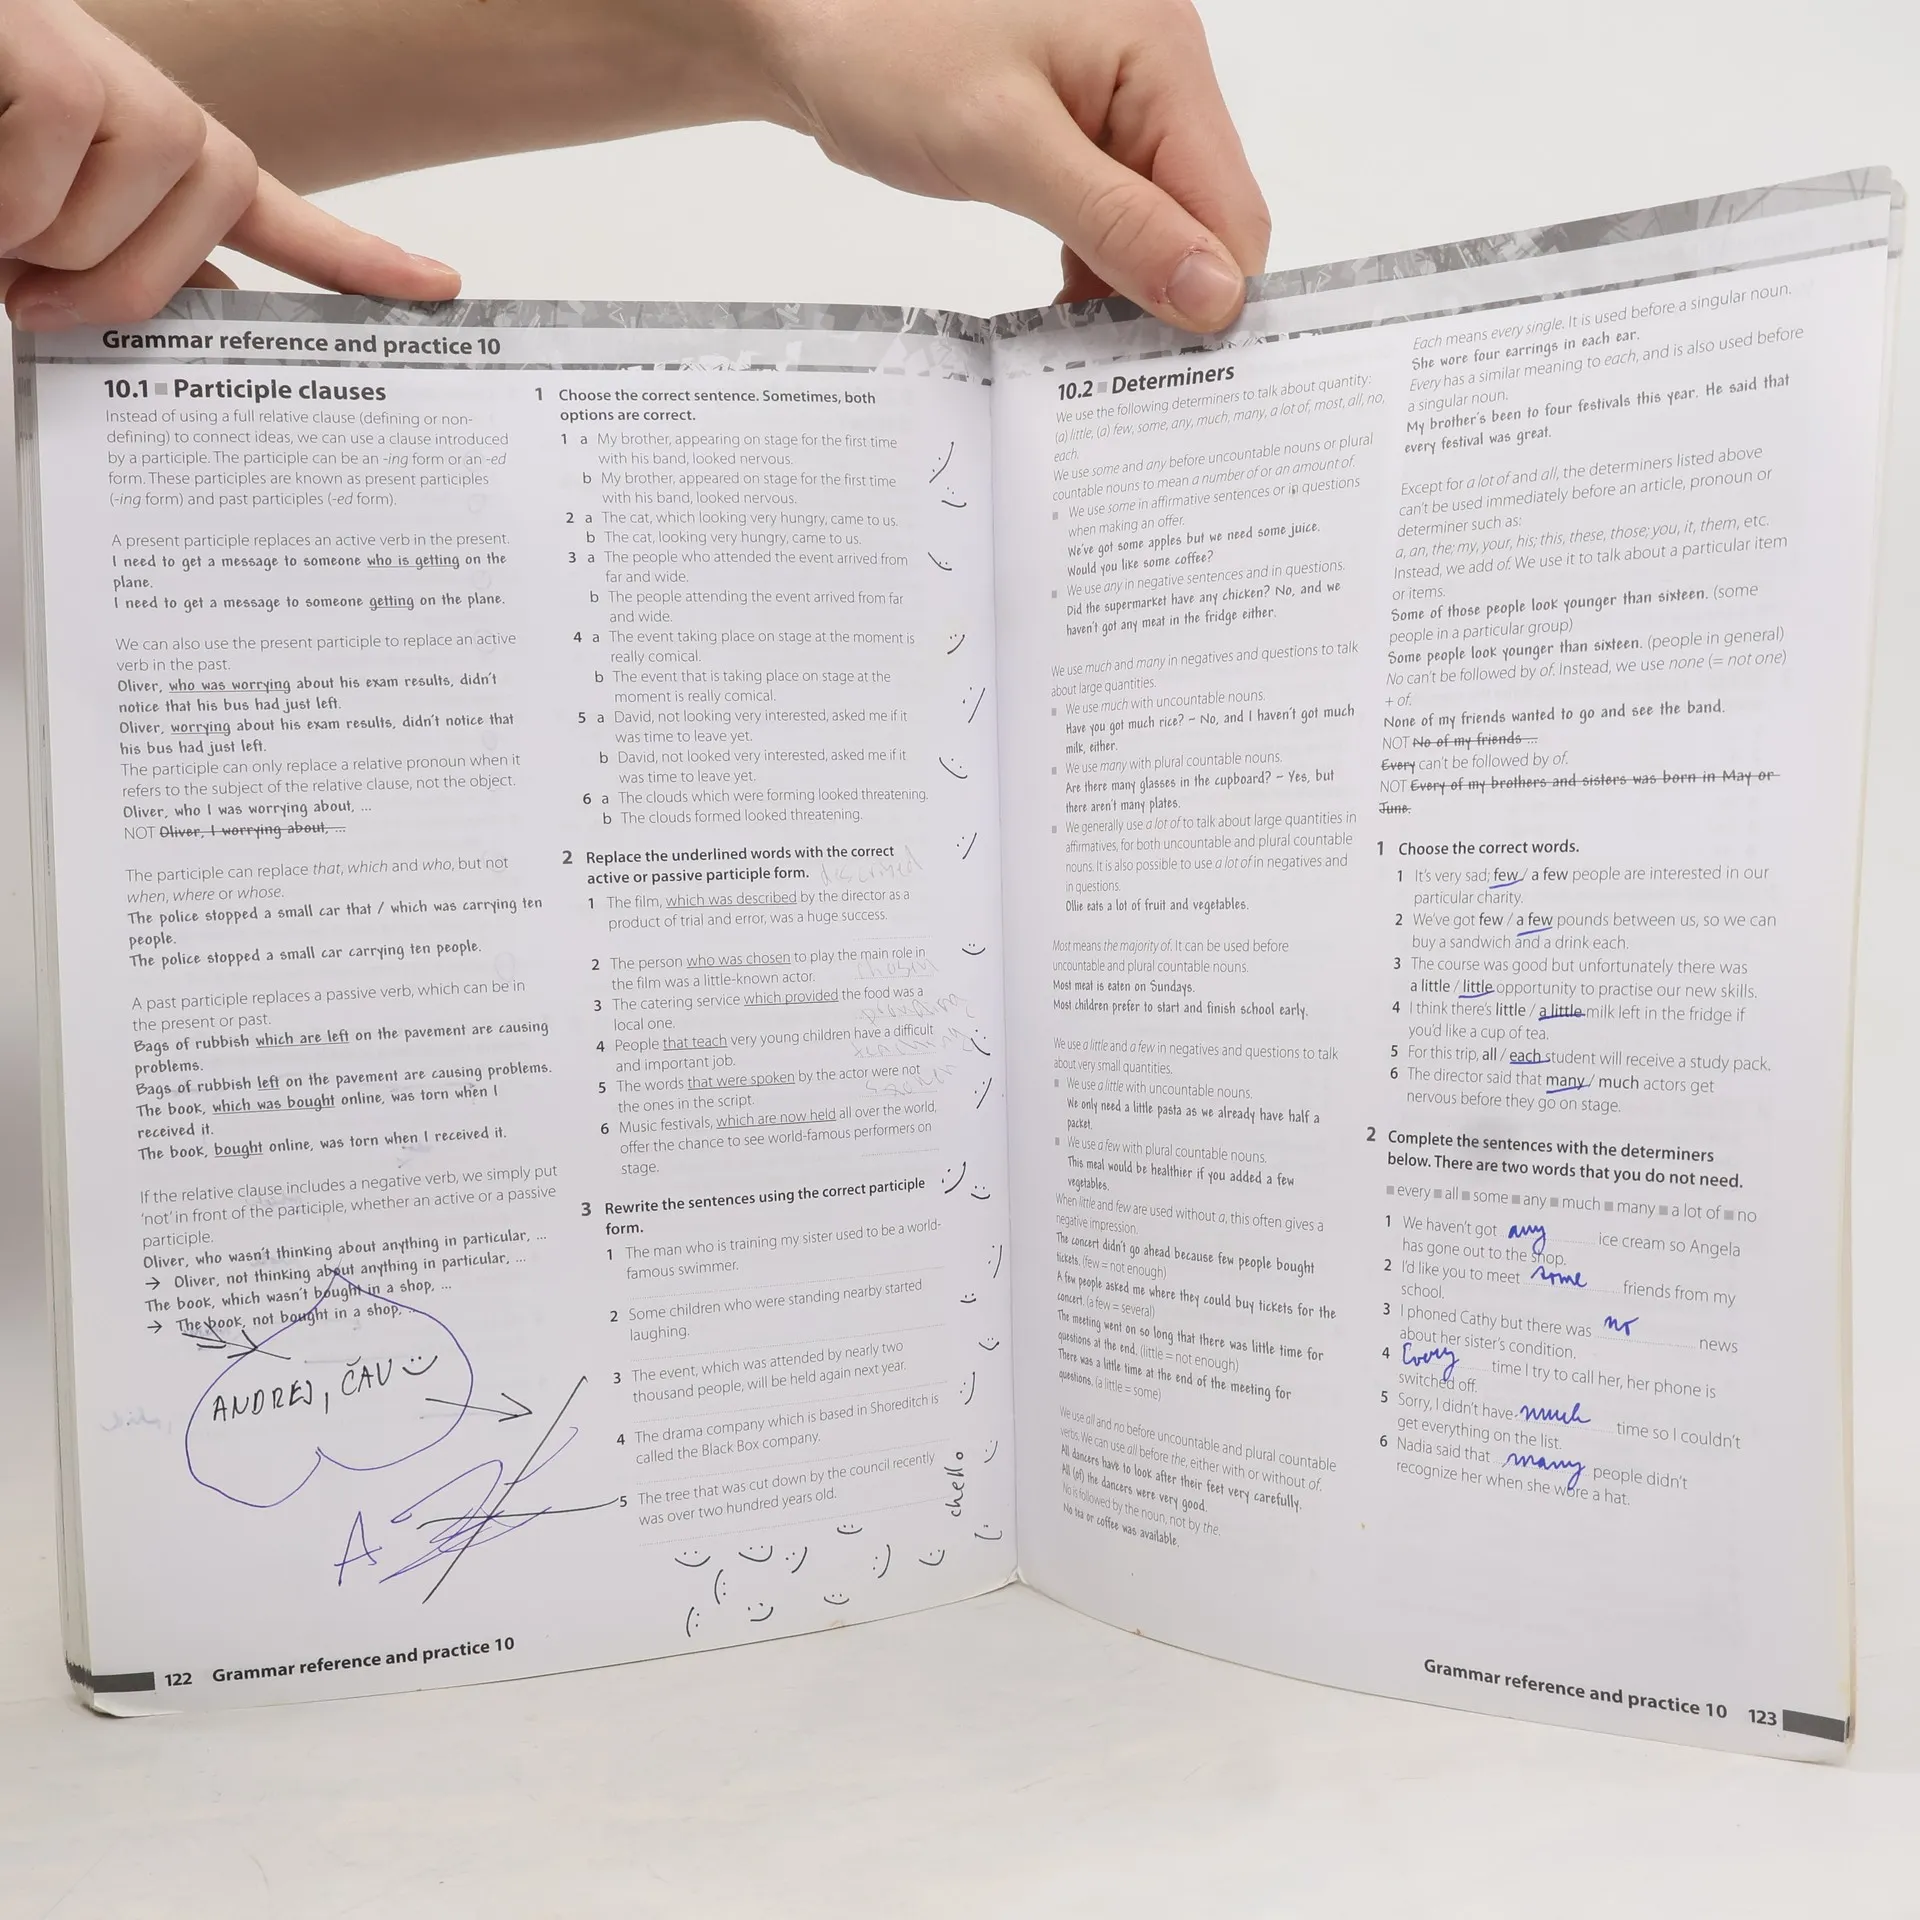 Grammar reference and practice 10
10.1 ■ Participle clauses
Instead of using a full relative clause (defining or non-
defining) to connect ideas, we can use a clause introduced
by a participle. The participle can be an -ing form or an -ed
form. These participles are known as present participles
(-ing form) and past participles (-ed form).
A present participle replaces an active verb in the present.
I need to get a message to someone who is getting on the
plane.
I need to get a message to someone getting on the plane.
We can also use the present participle to replace an active
verb in the past.
Oliver, who was worrying about his exam results, didn't
notice that his bus had just left.
Oliver, worrying about his exam results, didn't notice that
his bus had just left.
The participle can only replace a relative pronoun when it
refers to the subject of the relative clause, not the object.
Oliver, who I was worrying about, ...
NOT Oliver, I worrying about, ...
The participle can replace that, which and who, but not
when, where or whose.
The police stopped a small car that / which was carrying ten
people.
The police stopped a small car carrying ten people.
A past participle replaces a passive verb, which can be in
the present or past.
Bags of rubbish which are left on the pavement are causing
problems.
Bags of rubbish left on the pavement are causing problems.
The book, which was bought online, was torn when I
received it.
The book, bought online, was torn when I received it.
If the relative clause includes a negative verb, we simply put
'not' in front of the participle, whether an active or a passive
participle.
Oliver, who wasn't thinking about anything in particular, ...
→ Oliver, not thinking about anything in particular, ...
The book, which wasn't bought in a shop, ...
→ The book, not bought in a shop, ...
ANDREJ, ČAU :)
A
1 Choose the correct sentence. Sometimes, both
options are correct.
1 a My brother, appearing on stage for the first time
with his band, looked nervous.
b My brother, appeared on stage for the first time
with his band, looked nervous.
2 a The cat, which looking very hungry, came to us.
b The cat, looking very hungry, came to us.
3 a The people who attended the event arrived from
far and wide.
b The people attending the event arrived from far
and wide.
4 a The event taking place on stage at the moment is
really comical.
b The event that is taking place on stage at the
moment is really comical.
5 a David, not looking very interested, asked me if it
was time to leave yet.
b David, not looked very interested, asked me if it
was time to leave yet.
6 a The clouds which were forming looked threatening.
b The clouds formed looked threatening.
2 Replace the underlined words with the correct
active or passive participle form.
1 The film, which was described by the director as a
product of trial and error, was a huge success.
2 The person who was chosen to play the main role in
the film was a little-known actor. chosen
3 The catering service which provided the food was a
local one. providing
4 People that teach very young children have a difficult
and important job. teaching
5 The words that were spoken by the actor were not
the ones in the script. spoken
6 Music festivals, which are now held all over the world,
offer the chance to see world-famous performers on
stage.
3 Rewrite the sentences using the correct participle
form.
1 The man who is training my sister used to be a world-
famous swimmer.
2 Some children who were standing nearby started
laughing.
3 The event, which was attended by nearly two
thousand people, will be held again next year.
4 The drama company which is based in Shoreditch is
called the Black Box company.
5 The tree that was cut down by the council recently
was over two hundred years old.
chello
122 Grammar reference and practice 10
10.2 ■ Determiners
We use the following determiners to talk about quantity:
(a) little, (a) few, some, any, much, many, a lot of, most, all, no,
each.
We use some and any before uncountable nouns or plural
countable nouns to mean a number of or an amount of.
■ We use some in affirmative sentences or in questions
when making an offer.
We've got some apples but we need some juice.
Would you like some coffee?
■ We use any in negative sentences and in questions.
Did the supermarket have any chicken? No, and we
haven't got any meat in the fridge either.
We use much and many in negatives and questions to talk
about large quantities.
■ We use much with uncountable nouns.
Have you got much rice? – No, and I haven't got much
milk, either.
■ We use many with plural countable nouns.
Are there many glasses in the cupboard? – Yes, but
there aren't many plates.
■ We generally use a lot of to talk about large quantities in
affirmatives, for both uncountable and plural countable
nouns. It is also possible to use a lot of in negatives and
in questions.
Ollie eats a lot of fruit and vegetables.
Most means the majority of. It can be used before
uncountable and plural countable nouns.
Most meat is eaten on Sundays.
Most children prefer to start and finish school early.
We use a little and a few in negatives and questions to talk
about very small quantities.
■ We use a little with uncountable nouns.
We only need a little pasta as we already have half a
packet.
■ We use a few with plural countable nouns.
This meal would be healthier if you added a few
vegetables.
When little and few are used without a, this often gives a
negative impression.
The concert didn't go ahead because few people bought
tickets. (few = not enough)
A few people asked me where they could buy tickets for the
concert. (a few = several)
The meeting went on so long that there was little time for
questions at the end. (little = not enough)
There was a little time at the end of the meeting for
questions. (a little = some)
We use all and no before uncountable and plural countable
verbs. We can use all before the, either with or without of.
All dancers have to look after their feet very carefully.
All (of) the dancers were very good.
No is followed by the noun, not by the.
No tea or coffee was available.
Each means every single. It is used before a singular noun.
She wore four earrings in each ear.
Every has a similar meaning to each, and is also used before
a singular noun.
My brother's been to four festivals this year. He said that
every festival was great.
Except for a lot of and all, the determiners listed above
can't be used immediately before an article, pronoun or
determiner such as:
a, an, the; my, your, his; this, these, those; you, it, them, etc.
Instead, we add of. We use it to talk about a particular item
or items.
Some of those people look younger than sixteen. (some
people in a particular group)
Some people look younger than sixteen. (people in general)
No can't be followed by of. Instead, we use none (= not one)
+ of.
None of my friends wanted to go and see the band.
NOT No of my friends ...
Every can't be followed by of.
NOT Every of my brothers and sisters was born in May or
June.
1 Choose the correct words.
1 It's very sad; few / a few people are interested in our
particular charity.
2 We've got few / a few pounds between us, so we can
buy a sandwich and a drink each.
3 The course was good but unfortunately there was
a little / little opportunity to practise our new skills.
4 I think there's little / a little milk left in the fridge if
you'd like a cup of tea.
5 For this trip, all / each student will receive a study pack.
6 The director said that many / much actors get
nervous before they go on stage.
2 Complete the sentences with the determiners
below. There are two words that you do not need.
■ every ■ all ■ some ■ any ■ much ■ many ■ a lot of ■ no
1 We haven't got any ice cream so Angela
has gone out to the shop.
2 I'd like you to meet some friends from my
school.
3 I phoned Cathy but there was no news
about her sister's condition.
4 Every time I try to call her, her phone is
switched off.
5 Sorry, I didn't have much time so I couldn't
get everything on the list.
6 Nadia said that many people didn't
recognize her when she wore a hat.
Grammar reference and practice 10 123